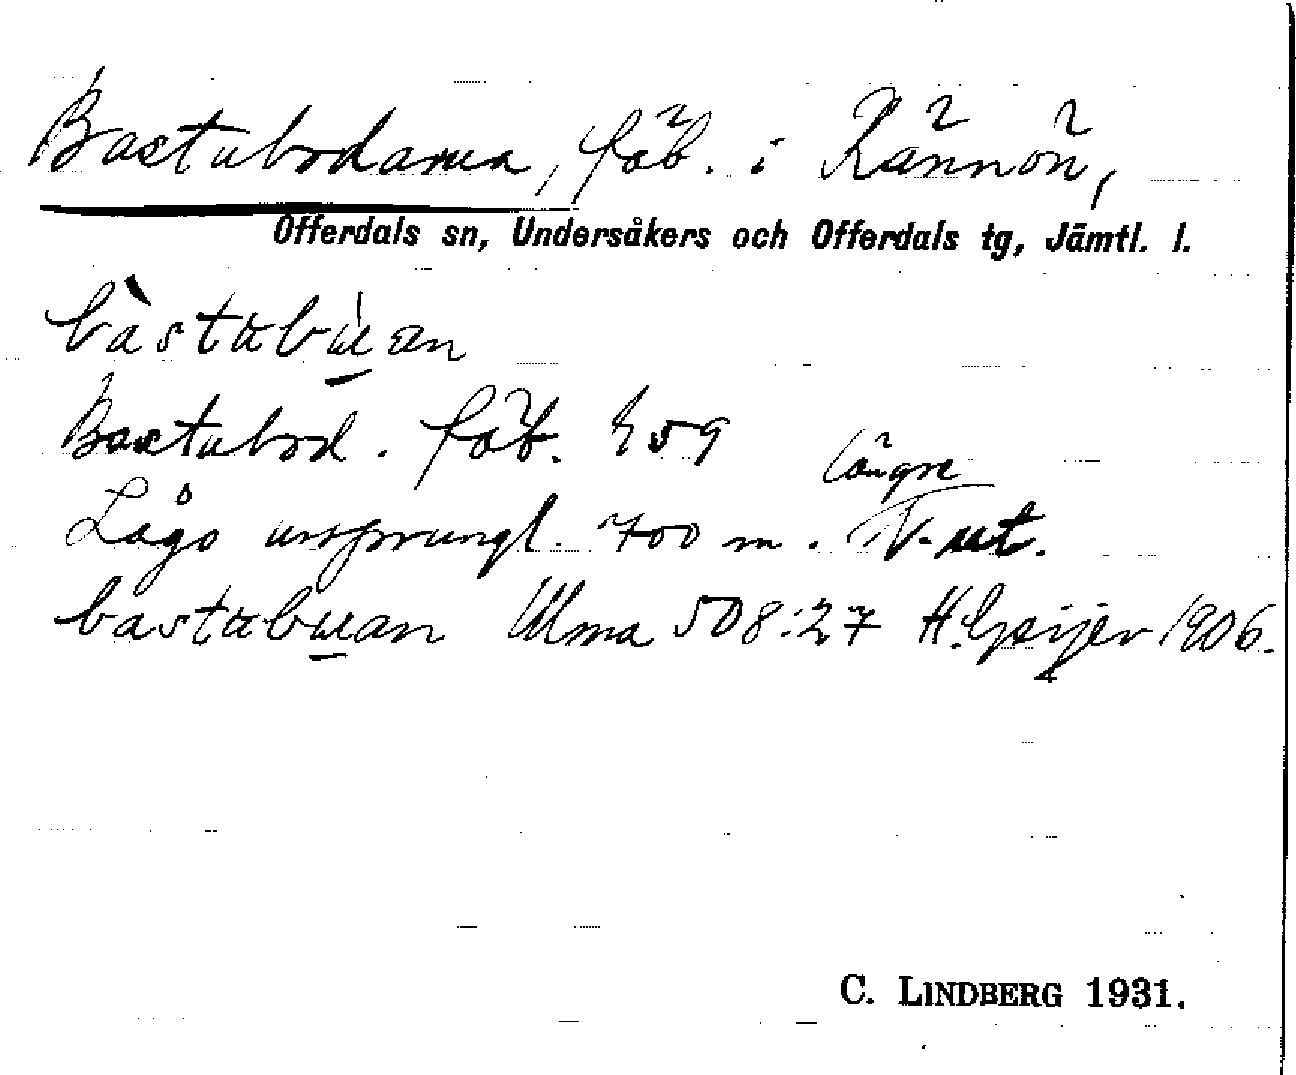 Bastubodarna, fäb. i Rännön,
Offerdals sn, Undersåkers och Offerdals tg, Jämtl. l.
bàstubu̱an
Bastubod. fäb. E59
längre
Lågo ursprungl. 700 m. V. ut.
bastubu̱an Ulma 508:27 H. Geijer 1906.
C. LINDBERG 1931.